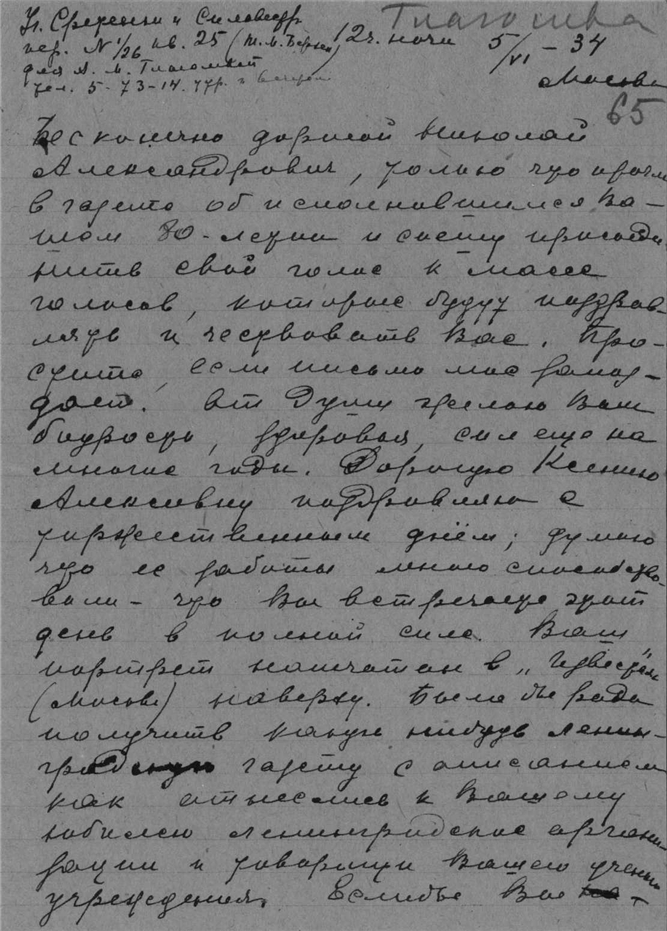 Уг. Сретенки и Сильвестр.
пер. № 1/26 кв. 25
для А. М.
тел. 5-73-14. утр. и вечером
12 ч. ночи 5/VI – 34
Москва
65
Бесконечно дорогой Николай
Александрович, только что прочла
в газете об исполнившимся Ва-
шем 80-летии и спешу присоеди-
нить свой голос к массе
голосов, которые будут поздрав-
лять и чествовать Вас. Про-
стите, если письмо мое запоз-
дает. От души желаю Вам
бодрости, здоровья, сил еще на
многие годы. Дорогую Ксению
Алексевну поздравляю с
торжественным днём; думаю
что ее заботы много способство-
вали – что Вы встречаете этот
день в полной силе. Ваш
портрет напечатан в „Известиях"
(Москва) наверху. Была бы рада
получить какую нибудь ленин-
градскую газету с описанием
как отнеслись к Вашему
юбилею ленинградские органи-
зации и товарищи Вашего ученого
учреждения. Если бы Вы